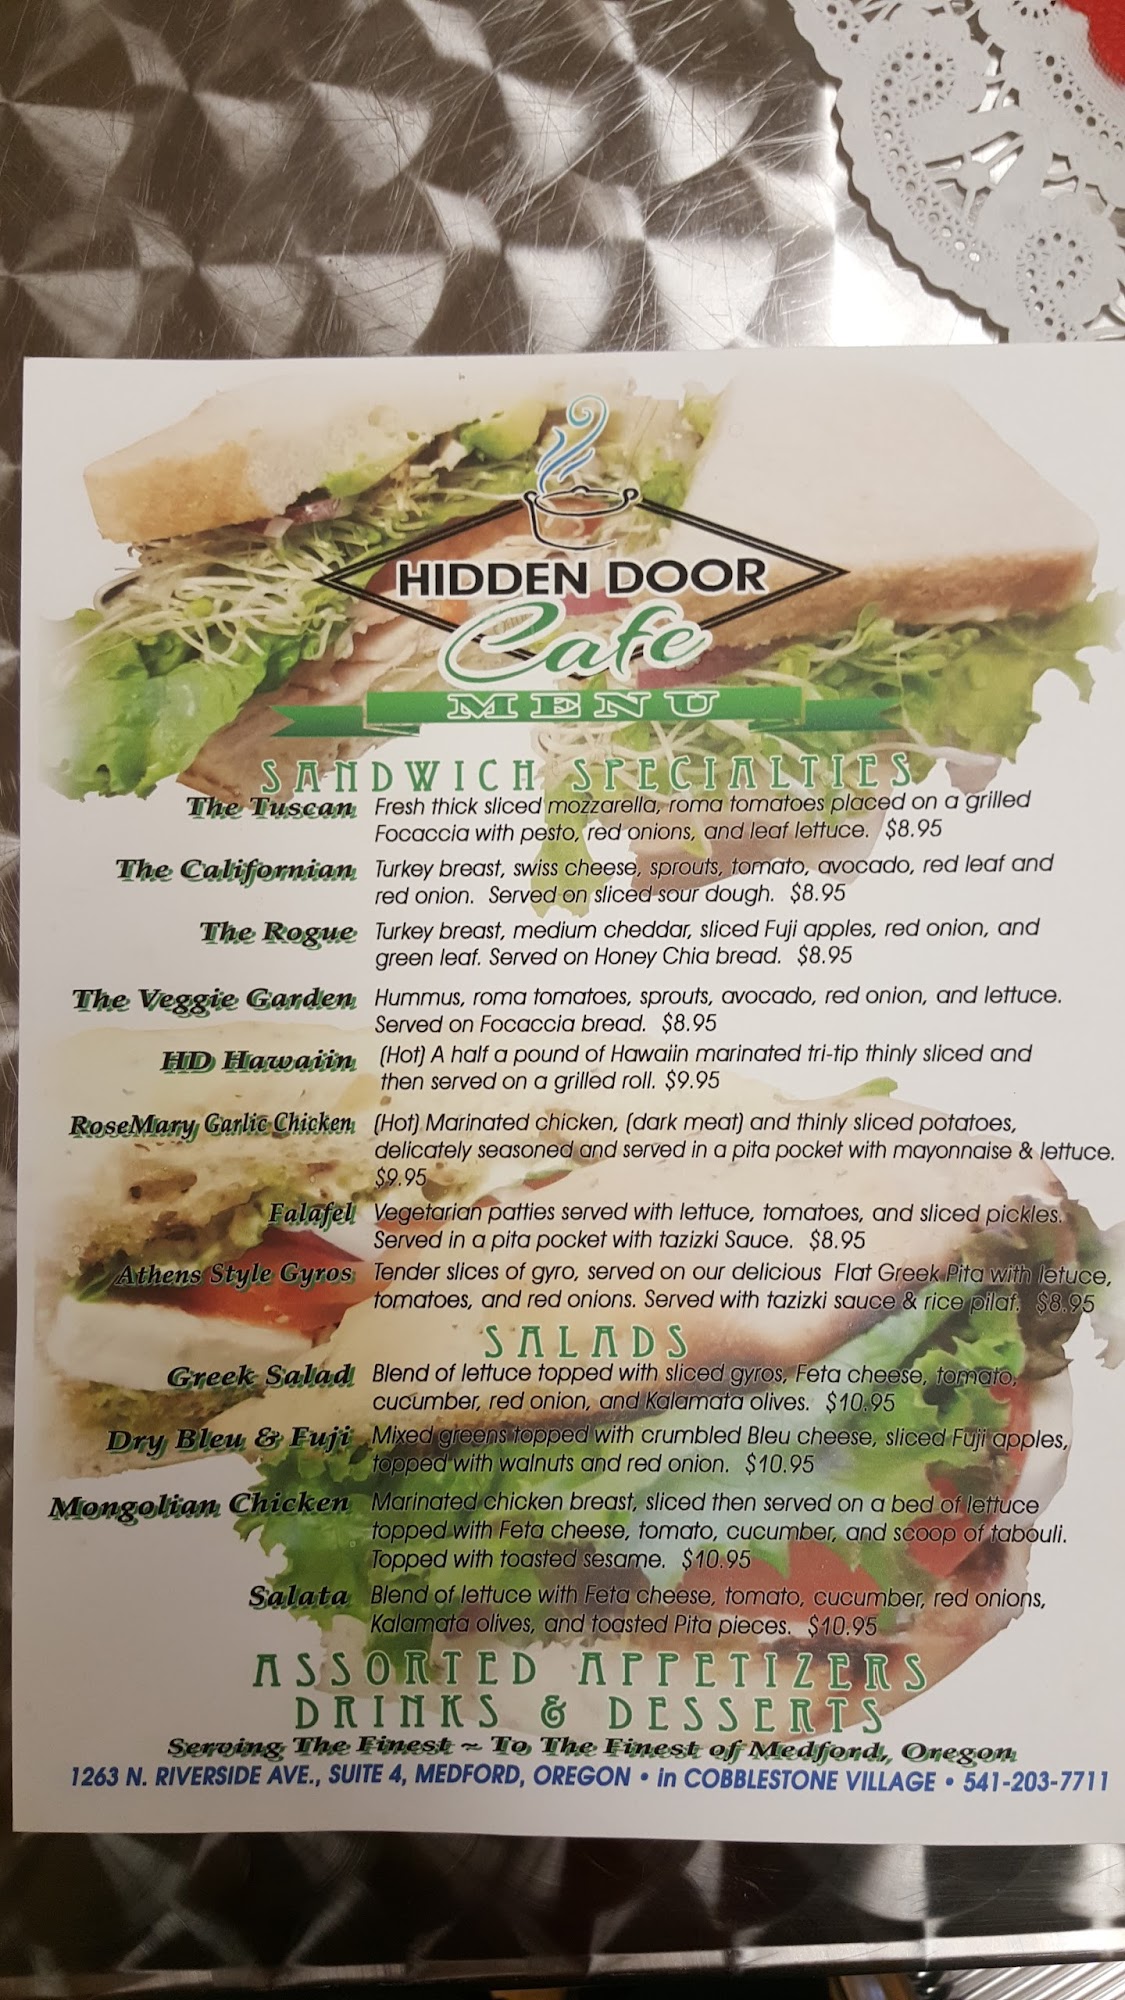 HIDDEN DOOR
Cafe
MENU
SANDWICH SPECIALTIES
The Tuscan Fresh thick sliced mozzarella, roma tomatoes placed on a grilled
Focaccia with pesto, red onions, and leaf lettuce. $8.95
The Californian Turkey breast, swiss cheese, sprouts, tomato, avocado, red leaf and
red onion. Served on sliced sour dough. $8.95
The Rogue Turkey breast, medium cheddar, sliced Fuji apples, red onion, and
green leaf. Served on Honey Chia bread. $8.95
The Veggie Garden Hummus, roma tomatoes, sprouts, avocado, red onion, and lettuce.
Served on Focaccia bread. $8.95
HD Hawaiin (Hot) A half a pound of Hawaiin marinated tri-tip thinly sliced and
then served on a grilled roll. $9.95
RoseMary Garlic Chicken (Hot) Marinated chicken, (dark meat) and thinly sliced potatoes,
delicately seasoned and served in a pita pocket with mayonnaise & lettuce.
$9.95
Falafel Vegetarian patties served with lettuce, tomatoes, and sliced pickles.
Served in a pita pocket with tazizki Sauce. $8.95
Athens Style Gyros Tender slices of gyro, served on our delicious Flat Greek Pita with letuce,
tomatoes, and red onions. Served with tazizki sauce & rice pilaf. $8.95
SALADS
Greek Salad Blend of lettuce topped with sliced gyros, Feta cheese, tomato,
cucumber, red onion, and Kalamata olives. $10.95
Dry Bleu & Fuji Mixed greens topped with crumbled Bleu cheese, sliced Fuji apples,
topped with walnuts and red onion. $10.95
Mongolian Chicken Marinated chicken breast, sliced then served on a bed of lettuce
topped with Feta cheese, tomato, cucumber, and scoop of tabouli.
Topped with toasted sesame. $10.95
Salata Blend of lettuce with Feta cheese, tomato, cucumber, red onions,
Kalamata olives, and toasted Pita pieces. $10.95
ASSORTED APPETIZERS
DRINKS & DESSERTS
Serving The Finest ~ To The Finest of Medford, Oregon
1263 N. RIVERSIDE AVE., SUITE 4, MEDFORD, OREGON • in COBBLESTONE VILLAGE • 541-203-7711